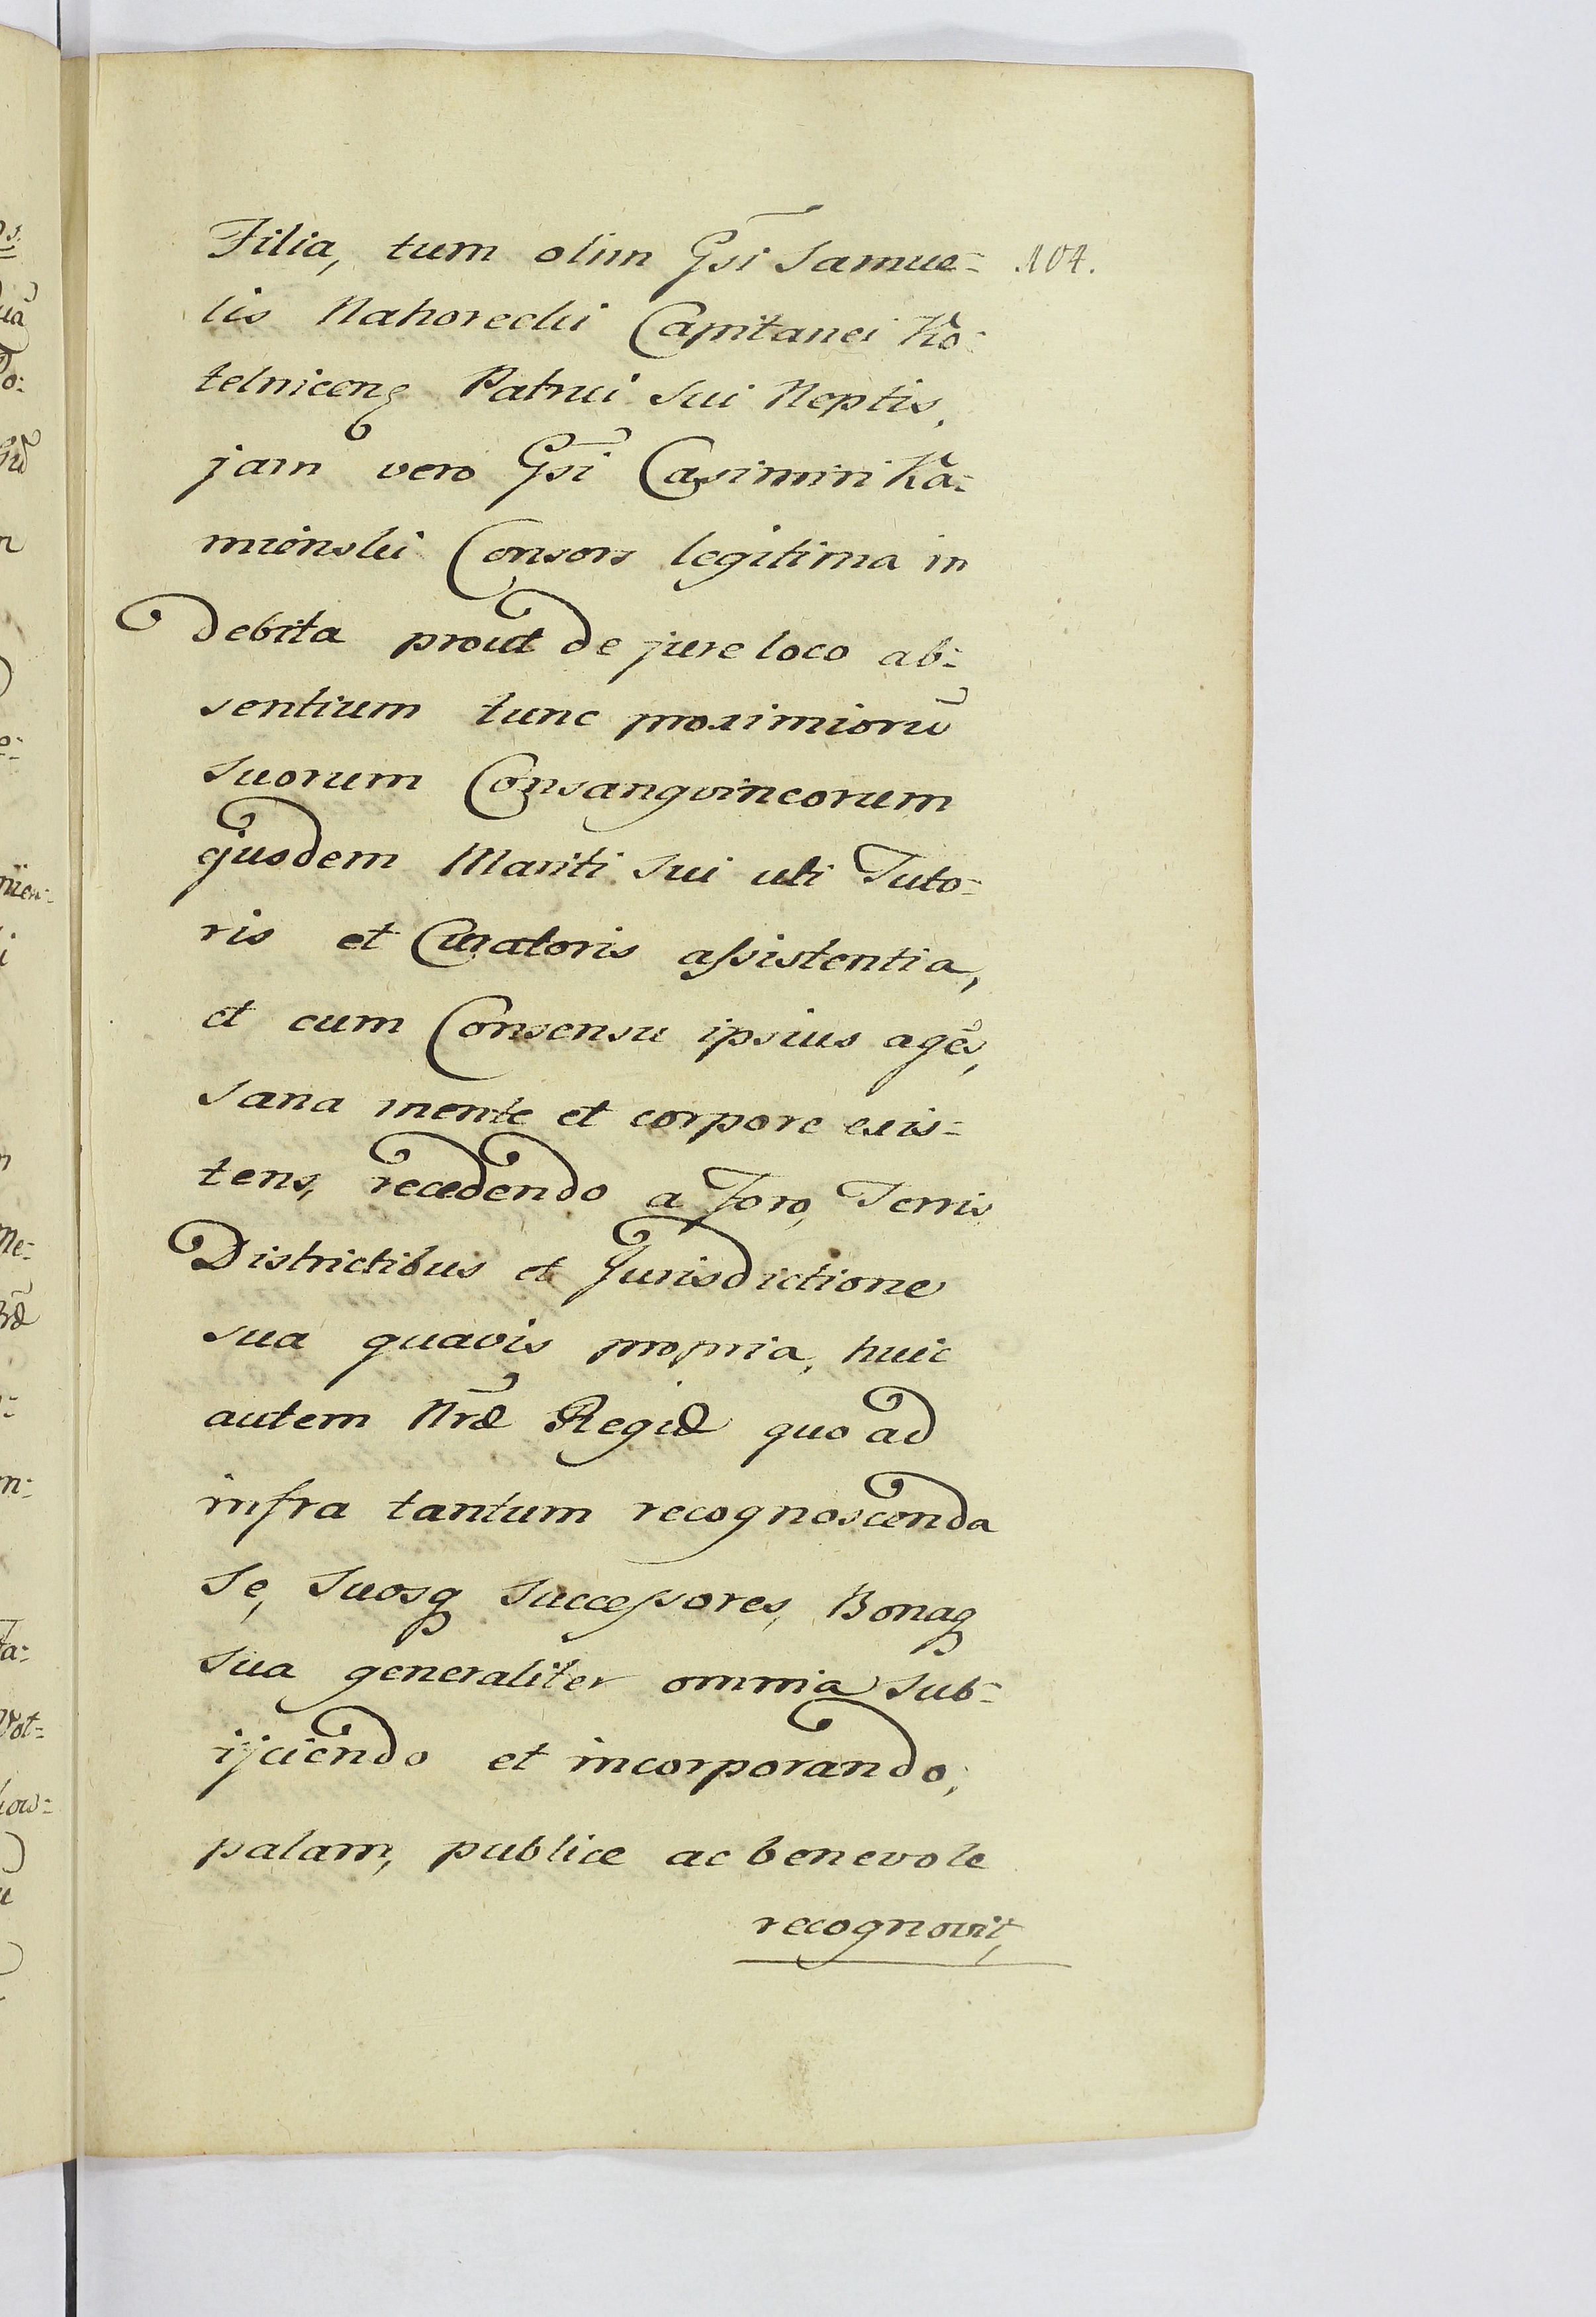 Filia, tum olim Gsi Samue= 104.
lis Nahorecki Capitanei Ko=
telniceng Patrui sui Neptis,
jam vero Gsi Casimiri Ka=
mienski Consors legitima in
debita prout de jure loco ab=
sentium tunc proximiorū
suorum Consangvineorum
ejusdem Mariti sui uti Tuto=
ris et Curatoris assistentia,
et cum Consensu ipsius agēs,
sana mente et corpore exis=
tens, recedendo a Foro, Terris
Districtibus et Jurisdictione
sua quavis propria, huic
autem Nræ Regiæ quo ad
infra tantum recognoscenda
se, suosq successores, Bonaq
sua generaliter omnia sub=
ijciendo et incorporando,
palam, publice ac benevole
recognovit,